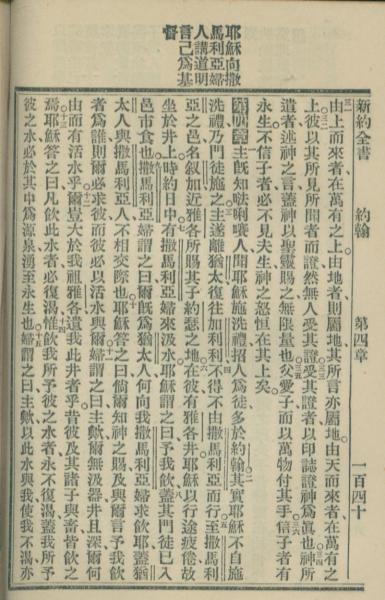 耶穌向撒
馬利亞婦
人講道明
言己為基
督
新約全書 約翰 第四章 一百四十
由上而來者在萬有之上由地者則屬地其所言亦屬地由天而來者在萬有之
上彼以其所見所聞者而證然無人受其證受其證者以印誌證神為真也神所
遣者述神之言蓋神以聖靈賜之無限量也父愛子而以萬物付其手信子者有
永生不信子者必不見夫生神之怒恒在其上矣
第四章主既知唎人聞耶穌施洗禮招人為徒多於約翰其實耶穌不自施
洗禮乃門徒施之主遂離猶太復往加利利不得不由撒馬利亞而行至撒馬利
亞之邑名叙加近雅各所賜其子約瑟之地在彼有雅各井耶穌以行途疲倦故
坐於井上時約日中有撒馬利亞婦來汲水耶穌謂之曰予我飲蓋其門徒已入
邑市食也撒馬利亞婦謂之曰爾既為猶太人何向我撒馬利亞婦求飲耶蓋猶
太人與撒馬利亞人不相交際也耶穌答之曰倘爾知神之賜及與爾言予我飲
者為誰則爾必求彼而彼必以活水與爾婦謂之曰主歟爾無汲器井且深爾何
由而有活水乎爾豈大於我祖雅各遺我此井者乎昔彼及其諸子與畜皆飲之
焉耶穌答之曰凡飲此水者必復渴惟飲我所予彼之水者永不復渴蓋我所予
彼之水必於其中為源泉湧至永生也婦謂之曰主歟以此水與我使我不渴亦